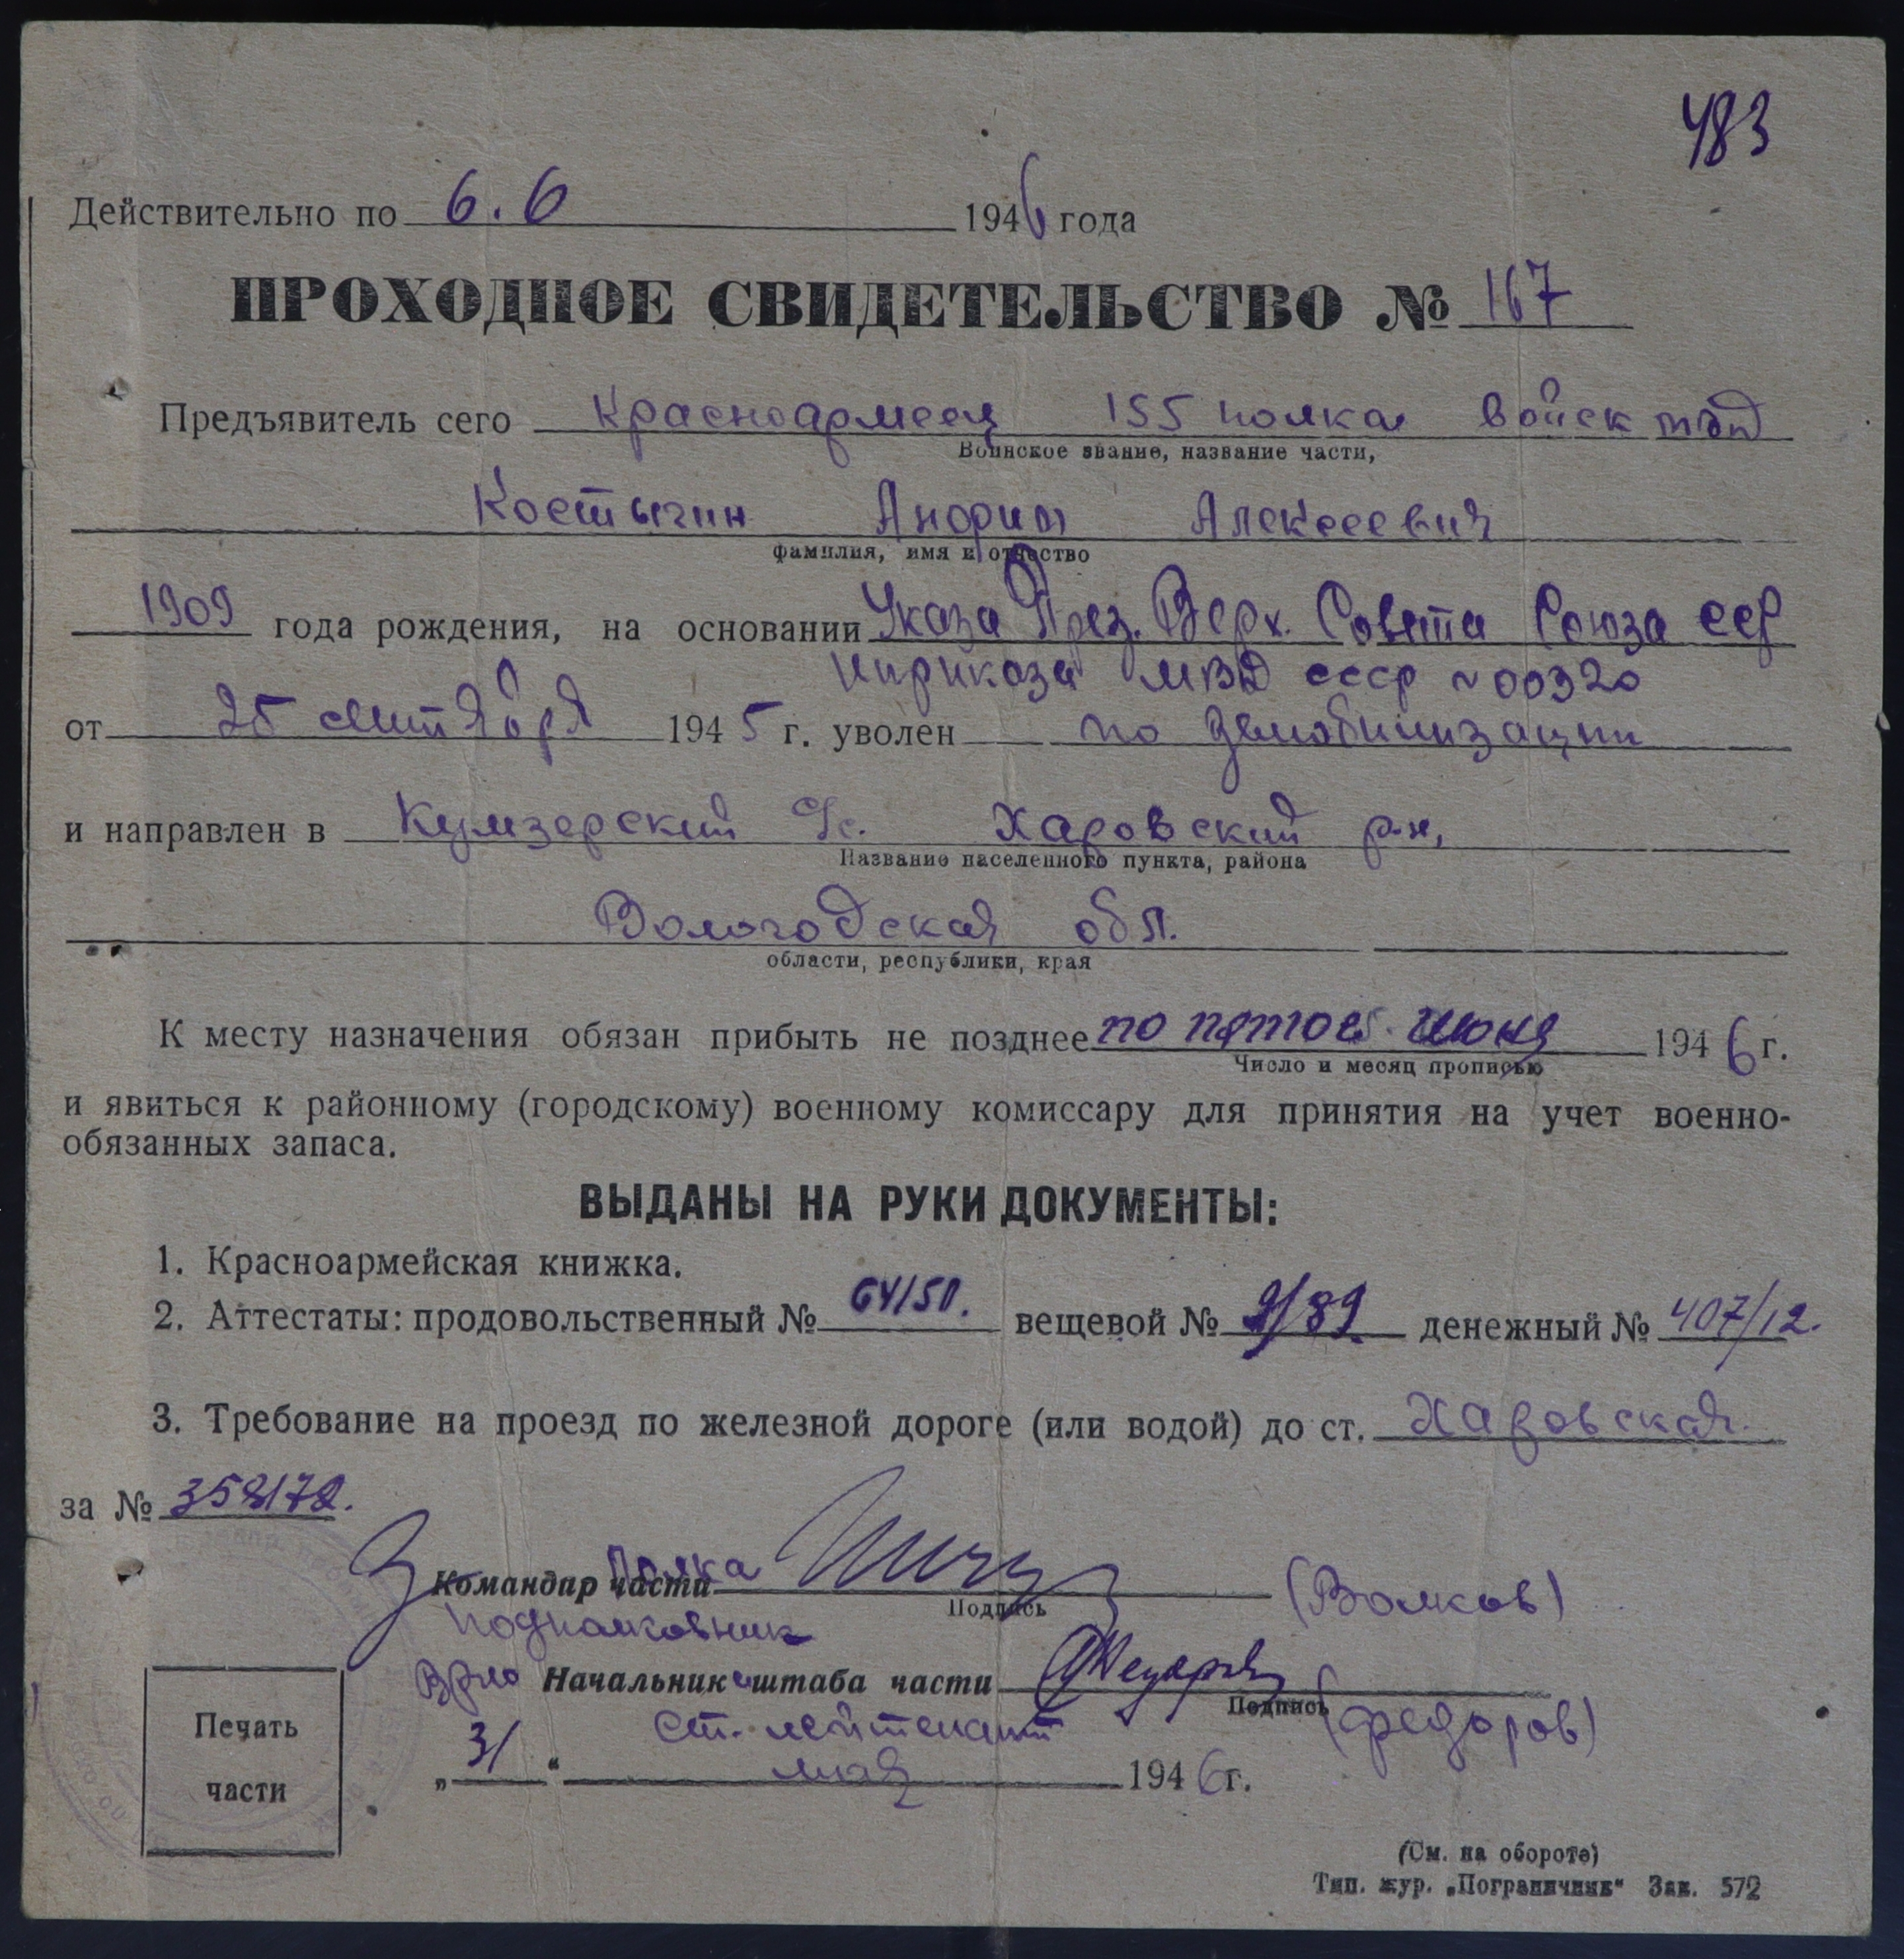 483
Действительно по 6.6 1946 года
ПРОХОДНОЕ СВИДЕТЕЛЬСТВО № 167
Предъявитель сего Красноармеец 155 полка войск мвд
Воинское звание, название части,
Костыгин Андрей Алексеевич
фамилия, имя и отчество
1909 года рождения, на основании Указа През. Верх. Совета Союза ССР
и приказа МВД СССР №00320
от 25 сентября 1945 г. уволен по демобилизации
и направлен в Кумзерский с/с. Харовский р-н,
Название населенного пункта, района
Вологодская обл.
области, республики, края
К месту назначения обязан прибыть не позднее по пятое июня 1946 г.
Число и месяц прописью
и явиться к районному (городскому) военному комиссару для принятия на учет военно-
обязанных запаса.
ВЫДАНЫ НА РУКИ ДОКУМЕНТЫ:
1. Красноармейская книжка.
2. Аттестаты: продовольственный № 64/50. вещевой № 9/89. денежный № 407/12.
3. Требование на проезд по железной дороге (или водой) до ст. Харовская.
за № 358172.
Командир части полка (Волков)
Подпись
подполковник
Врио Начальник штаба части
Подпись
ст. лейтенант (Федоров)
„31“ мая 1946 г.
Печать
части
(См. на обороте)
Тип. жур. „Пограничник“ Зак. 572